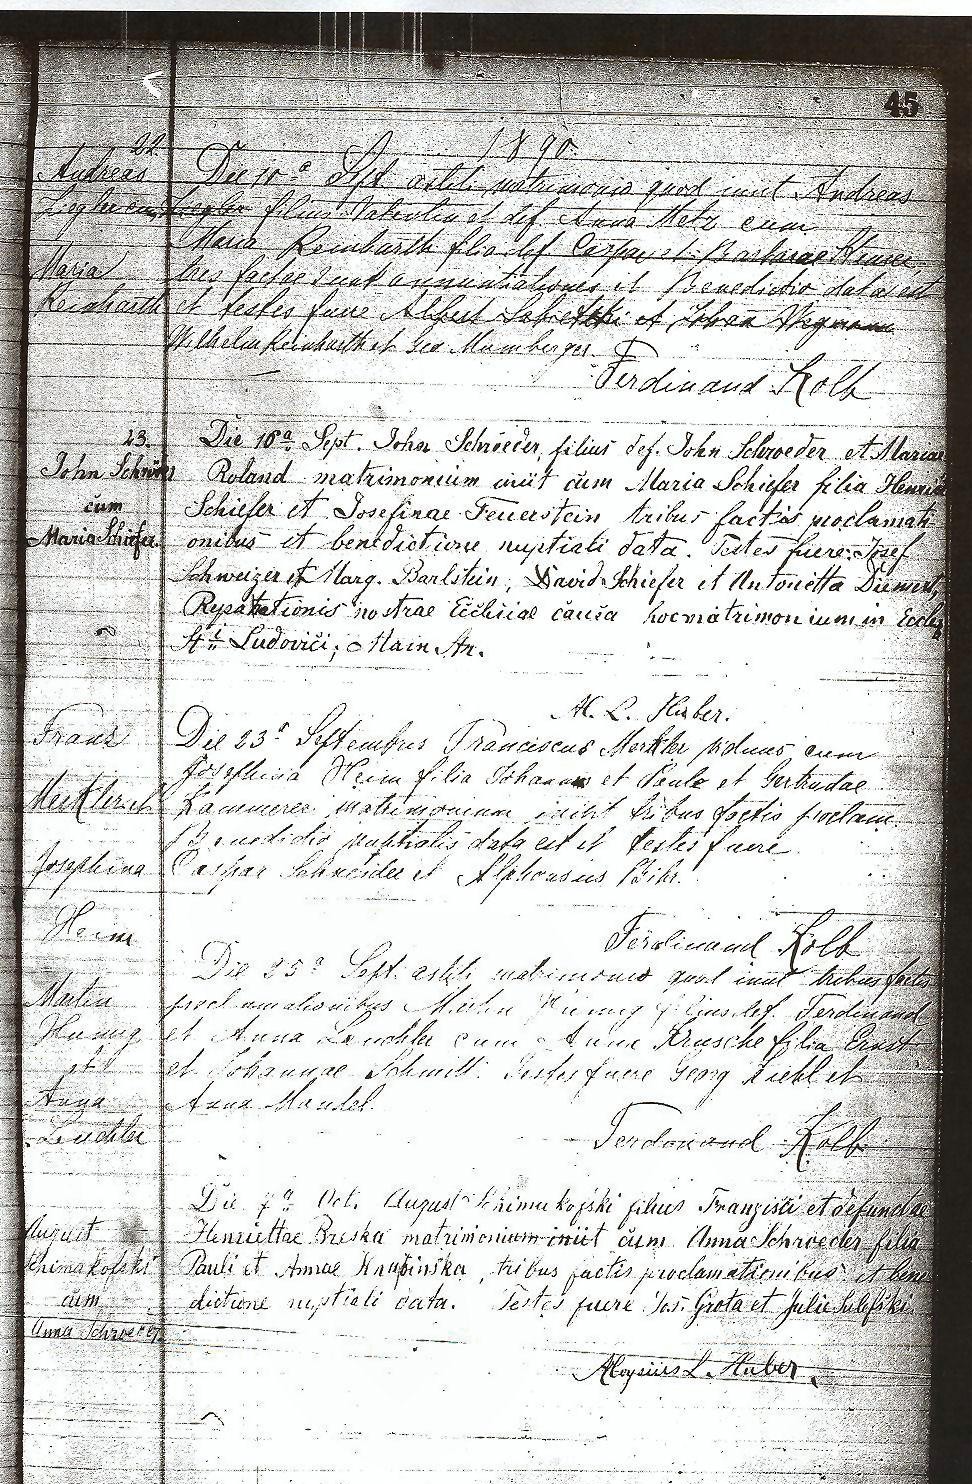 45
1890
22.
Andreas
Maria
Reinharth
Die 10ª Sept. astiti matrimonio quod iniit Andreas
Ziegler filius Valentin et def. Anna Metz cum
Maria Reinharth filia def. Caspar et Barbarae
tres factae sunt annuntiationes et Benedictio data est
et testes fuere Albert et
Wilhelm Reinharth et Geo. Mumberger.
Ferdinand Kolb
23.
John Schröder
cum
Maria Schiefer.
Die 16ª Sept. John Schröeder, filius def. John Schroeder et Mariae
Roland matrimonium iniit cum Maria Schiefer filia Henrici
Schiefer et Josefinae Feuerstein tribus factis proclamati
onibus et benedictione nuptiali data. Testes fuere: Josef
Schweizer et Marg. Barlstein, David Schiefer et Antonietta Diemert,
Reparationis nostrae Ecclesiae causa hoc matrimonium in Eccles
Sti Ludovici, Main Str.
A. L. Huber.
Franz
Merkler et
Josephina
Heim
Die 23ª Septembris Franciscus Merkler viduus cum
Josephina Heim filia Johannis et Paula et Gertrudae
Kammerer matrimonium iniit tribus factis proclam.
Benedictio nuptialis data est et testes fuere
Caspar Schneider et Alphonsus Bihr.
Ferdinand Kolb
Martin
Hunnig
et
Anna
Leuchler
Die 25ª Sept. astiti matrimonio quod iniit tribus factis
proclamationibus Martin Hunnig filius def. Ferdinand
et Anna Leuchler cum Anna Krusche filia Ernst
et Johannae Schmitt. Testes fuere Georg Diehl et
Anna Mandel.
Ferdinand Kolb
August
Shimakofski
cum
Anna Schroeder.
Die 7ª Oct. August Shimakofski filius Franzisci et defunctae
Henriettae Breska matrimonium iniit cum Anna Schroeder filia
Pauli et Annae Krabinska, tribus factis proclamationibus et bene
dictione nuptiali data. Testes fuere Jos. Grota et Julie Sulefski.
Aloysius L. Huber.